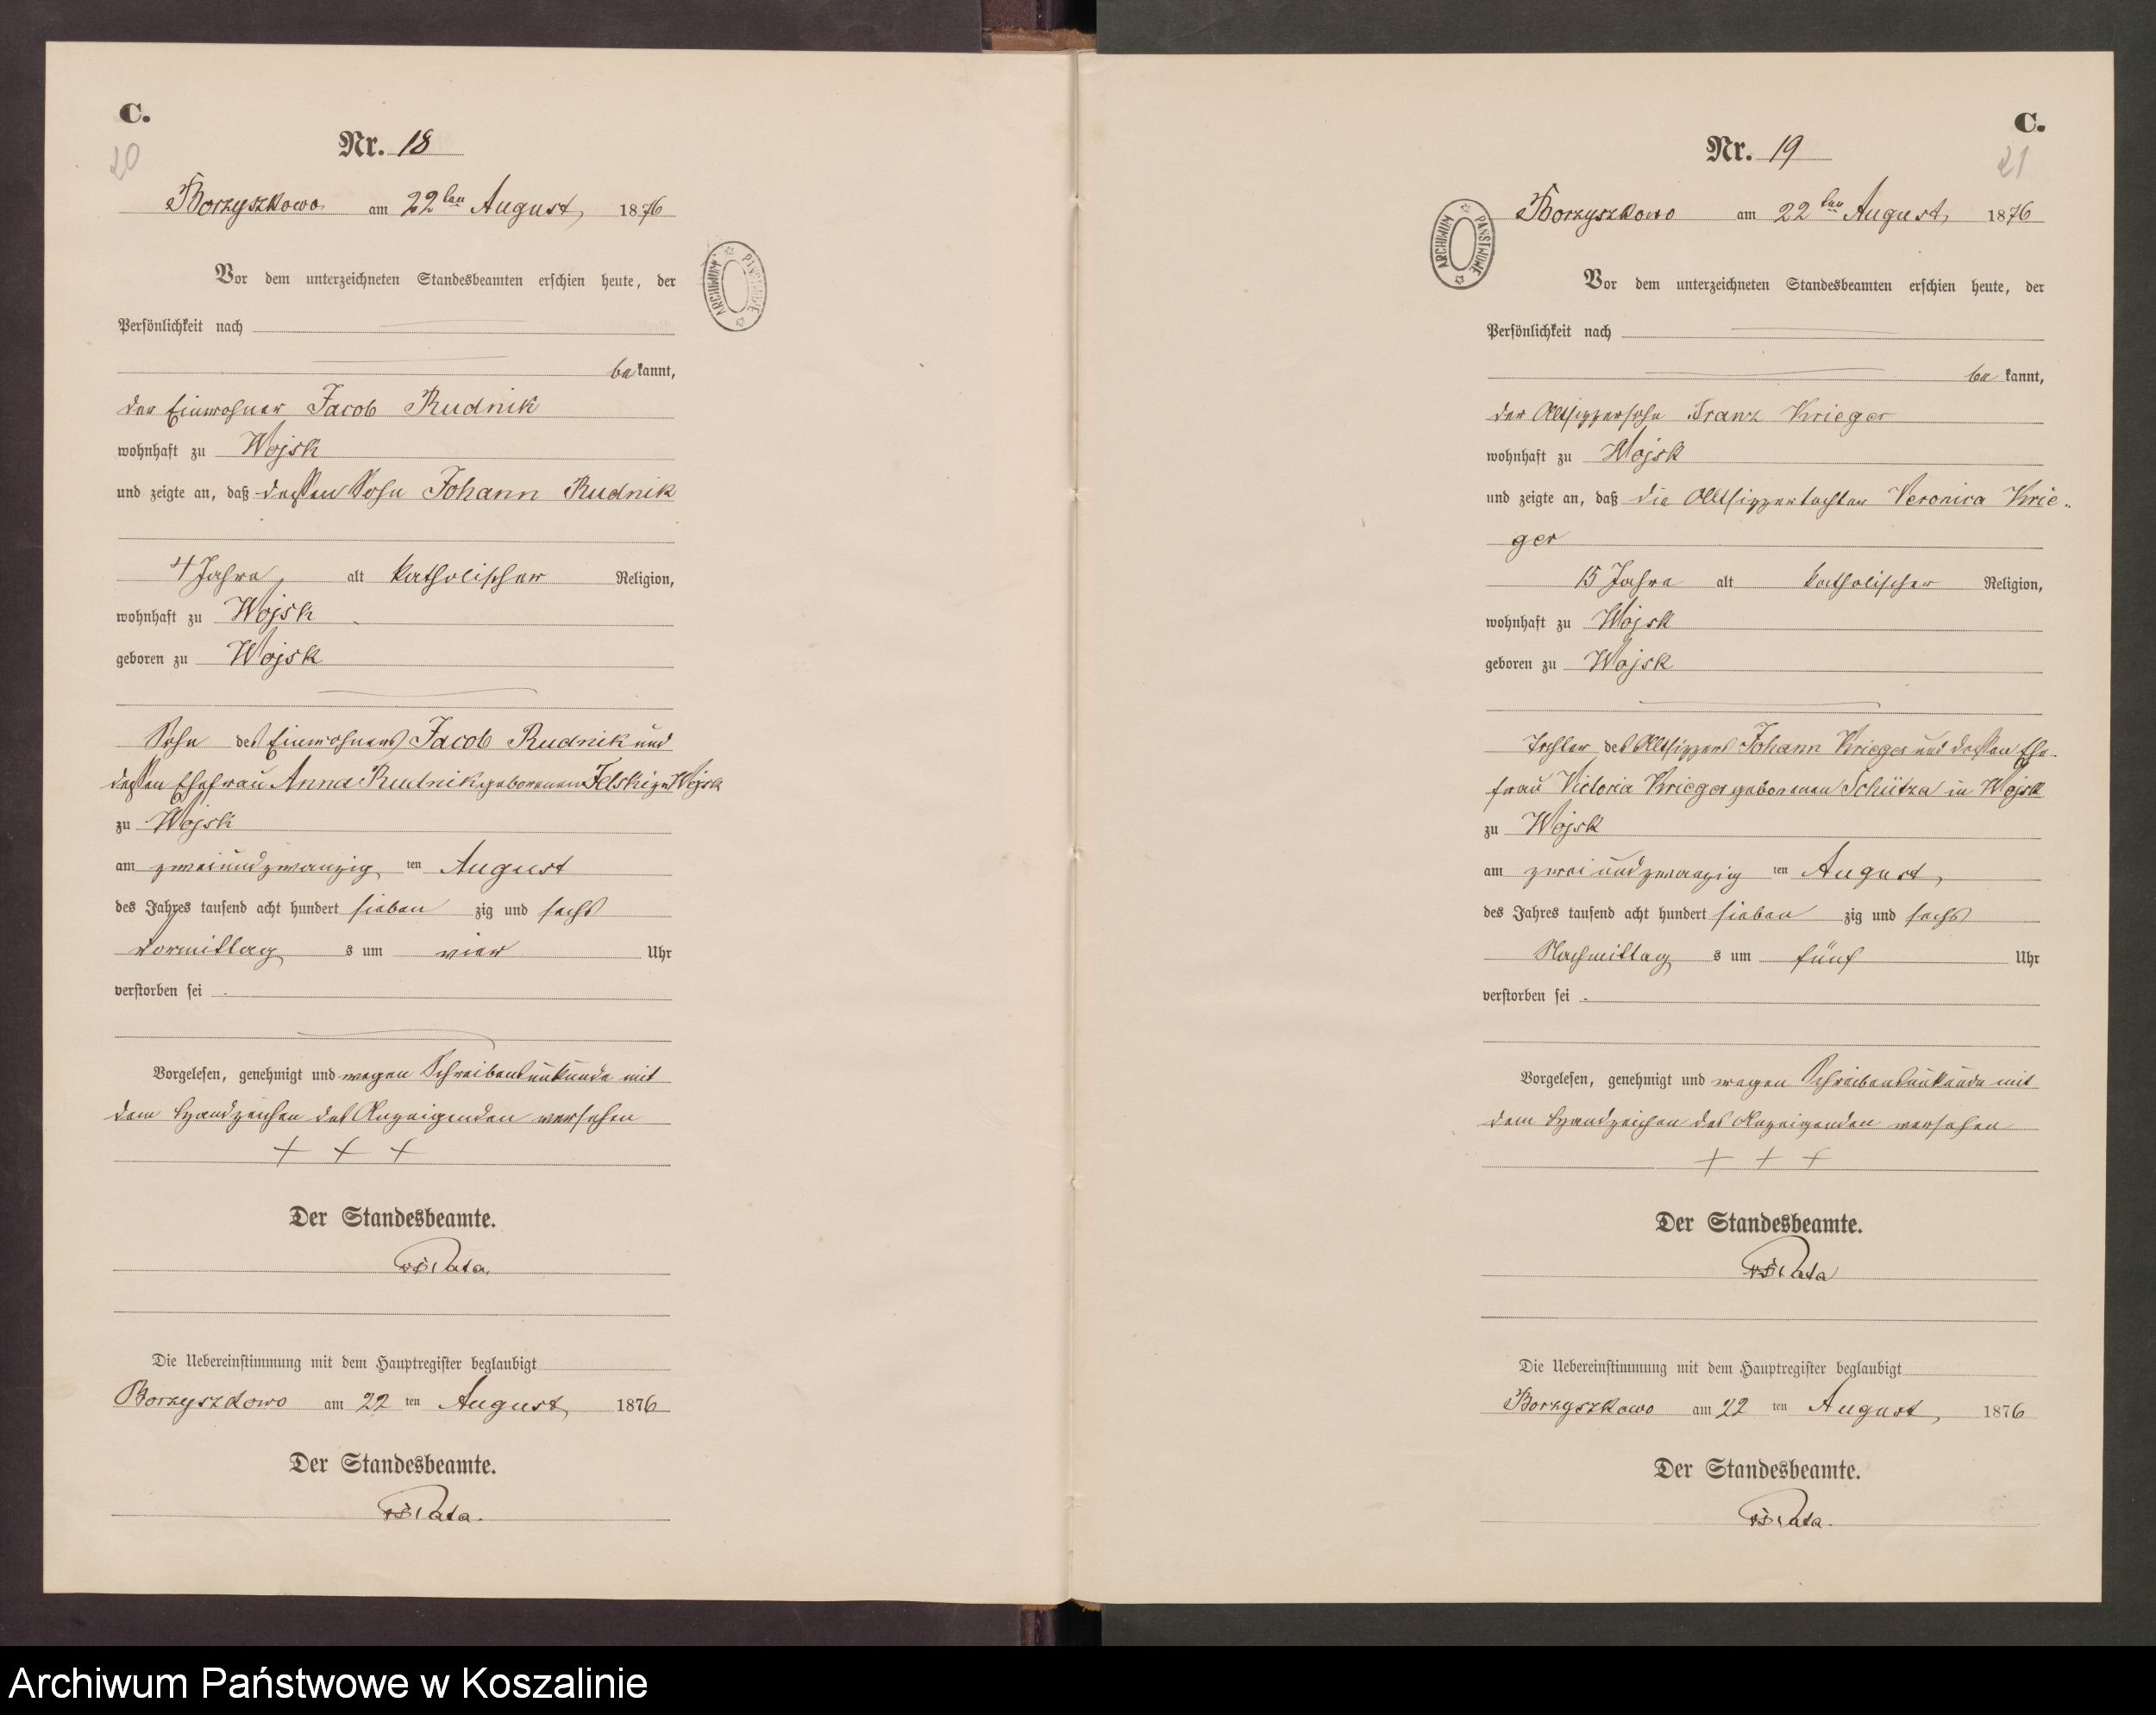 C.
20
Nr. 18
Borzyszkowo am 22ten August, 1876
ARCHIWUM PAŃSTWOWE
Vor dem unterzeichneten Standesbeamten erschien heute, der
Persönlichkeit nach
bekannt,
der Einwohner Jacob Rudnik
wohnhaft zu Wojsk
und zeigte an, daß dessen Sohn Johann Rudnik
4 Jahre, alt katholischer Religion,
wohnhaft zu Wojsk
geboren zu Wojsk
Sohn des Einwohners Jacob Rudnik und
dessen Ehefrau Anna Rudnik geborenen Felski zu Wojsk
zu Wojsk
am zweiundzwanzig ten August
des Jahres tausend acht hundert sieben zig und sechs
vormittag s um vier Uhr
verstorben sei .
Vorgelesen, genehmigt und wegen Schreibensunkunde mit
dem Handzeichen des Anzeigenden versehen
+ + +
Der Standesbeamte.
Die Uebereinstimmung mit dem Hauptregister beglaubigt
Borzyszkowo am 22 ten August, 1876
Der Standesbeamte.
C.
21
Nr. 19
Borzyszkowo am 22ten August, 1876
ARCHIWUM PAŃSTWOWE
Vor dem unterzeichneten Standesbeamten erschien heute, der
Persönlichkeit nach
be kannt,
der Altsitzersohn Franz Krieger
wohnhaft zu Wojsk
und zeigte an, daß die Altsitzertochter Veronica Krie-
ger
15 Jahre alt katholischer Religion,
wohnhaft zu Wojsk
geboren zu Wojsk
Tochter des Altsitzers Johann Krieger und dessen Ehe-
frau Victoria Krieger geborenen Schütza in Wojsk
zu Wojsk
am zweiundzwanzig ten August,
des Jahres tausend acht hundert sieben zig und sechs
Nachmittag s um fünf Uhr
verstorben sei .
Vorgelesen, genehmigt und wegen Schreibensunkunde mit
dem Handzeichen des Anzeigenden versehen
+ + +
Der Standesbeamte.
Die Uebereinstimmung mit dem Hauptregister beglaubigt
Borzyszkowo am 22 ten August, 1876
Der Standesbeamte.
Archiwum Państwowe w Koszalinie